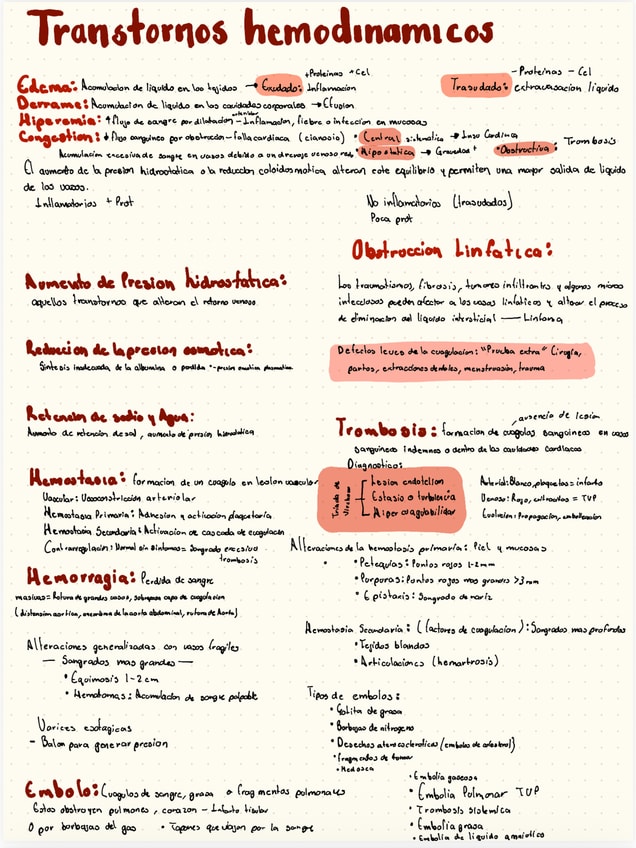 Transtornos hemodinamicos
+Proteinas +Cel
- Proteinas - Cel
Edema: Acumulacion de liquido en los tejidos → Exudado: Inflamacion
Trasudado: extravasacion liquido
Derrame: Acumulacion de liquido en las cavidades corporales → Efusion
Hiperemia: ↑ flujo de sangre por dilatacion - Inflamasion, fiebre o infeccion en mucosas
Congestion: ↓ flujo sanguineo por obstruccion - falla cardiaca (cianosis) • Central sistematica → Insu Cardiaca
Acumulacion excesiva de sangre en vasos debido a un drenaje venoso red. • Hipostatica → Gravedad + • Obstructiva: Trombosis
El aumento de la presion hidrostatica o la reduccion coloidosmotica alteran este equilibrio y permiten una mayor salida de liquido
de los vasos.
Inflamatorios + Prot
No inflamatorios (trasudados)
Poca prot
Obstruccion Linfatica:
Aumento de Presion hidrostatica:
aquellos transtornos que alteran el retorno venoso.
Los traumatismos, fibrosis, tumores infiltrantes y algunos micro
infecciosos pueden afectar a los vasos linfaticos y alterar el proceso
de eliminacion del liquido intersticial — Linfoma
Reduccion de la presion osmotica:
Sintesis inadecuada de la albumina o perdida - presion osmotica plasmatica
Defectos leves de la coagulacion: "Prueba extra" Cirugia,
partos, extracciones dentales, menstruasion, trauma
Retencion de sodio y Agua:
Aumento de retencion de sal, aumento de presion hidrostatica
ausencia de lesion
Trombosis: formacion de coagulos sanguineos en vasos
sanguineos indemnes o dentro de las cavidades cardiacas
Diagnostico:
Hemostasia: formacion de un coagulo en lesion vascular
Vascular: Vasoconstriccion arteriolar
Hemostasia Primaria: Adhesion y activacion plaquetaria
Hemostasia Secundaria: Activacion de cascada de coagulacion
Contrarregulacion: Normal sin sintomas - Sangrado excesivo
trombosis
Triada de Virchow
Lesion endotelion
Estasis o turbulencia
Hiper coagulabilidad
Arterial: Blanco, plaquetas = infarto
Venoso: Rojo, eritrocitos = TVP
Evolucion: Propagacion, embolizacion
Hemorragia: Perdida de sangre
masivas = Rotura de grandes vasos, sobrepasa capa de coagulacion
(distension aortica, aneurisma de la aorta abdominal, rutura de Aorta)
Alteraciones de la hemostasis primaria: Piel y mucosas
• Petequias: Puntos rojos 1-2mm
• Purpuras: Puntos rojos mas grandes >3mm
• Epistaxis: Sangrado de nariz
Alteraciones generalizadas con vasos fragiles
— Sangrados mas grandes —
• Equimosis 1-2 cm
• Hematomas: Acumulacion de sangre palpable
Hemostasia Secundaria: (factores de coagulacion): Sangrados mas profundos
• Tejidos blandos
• Articulaciones (hemartrosis)
Varices esofagicas
- Balon para generar presion
Tipos de embolos:
• Gotita de grasa
• Borbujas de nitrogeno
• Desechos ateroscleroticos (embolos de colesterol)
• Fragmentos de tumor
• Medosea
Embolo: Coagulos de sangre, grasa o fragmentos pulmonales
Estos obstruyen pulmones, corazon - Infarto tisular
O por borbujas del gas • Tapones que viajan por la sangre
• Embolia gaseosa
• Embolia Pulmonar TVP
• Trombosis sistemica
• Embolia grasa
• Embolia de liquido amniotico